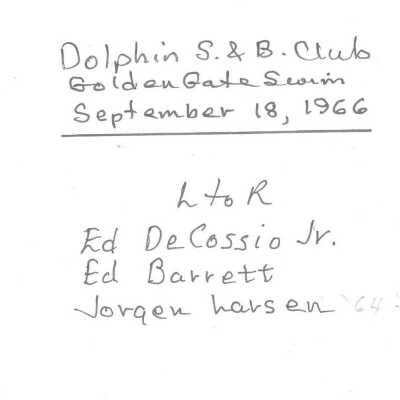 Dolphin S. & B. Club
Golden Gate Swim
September 18, 1966
L to R
Ed DeCossio Jr.
Ed Barrett
Jorgen Larsen '64